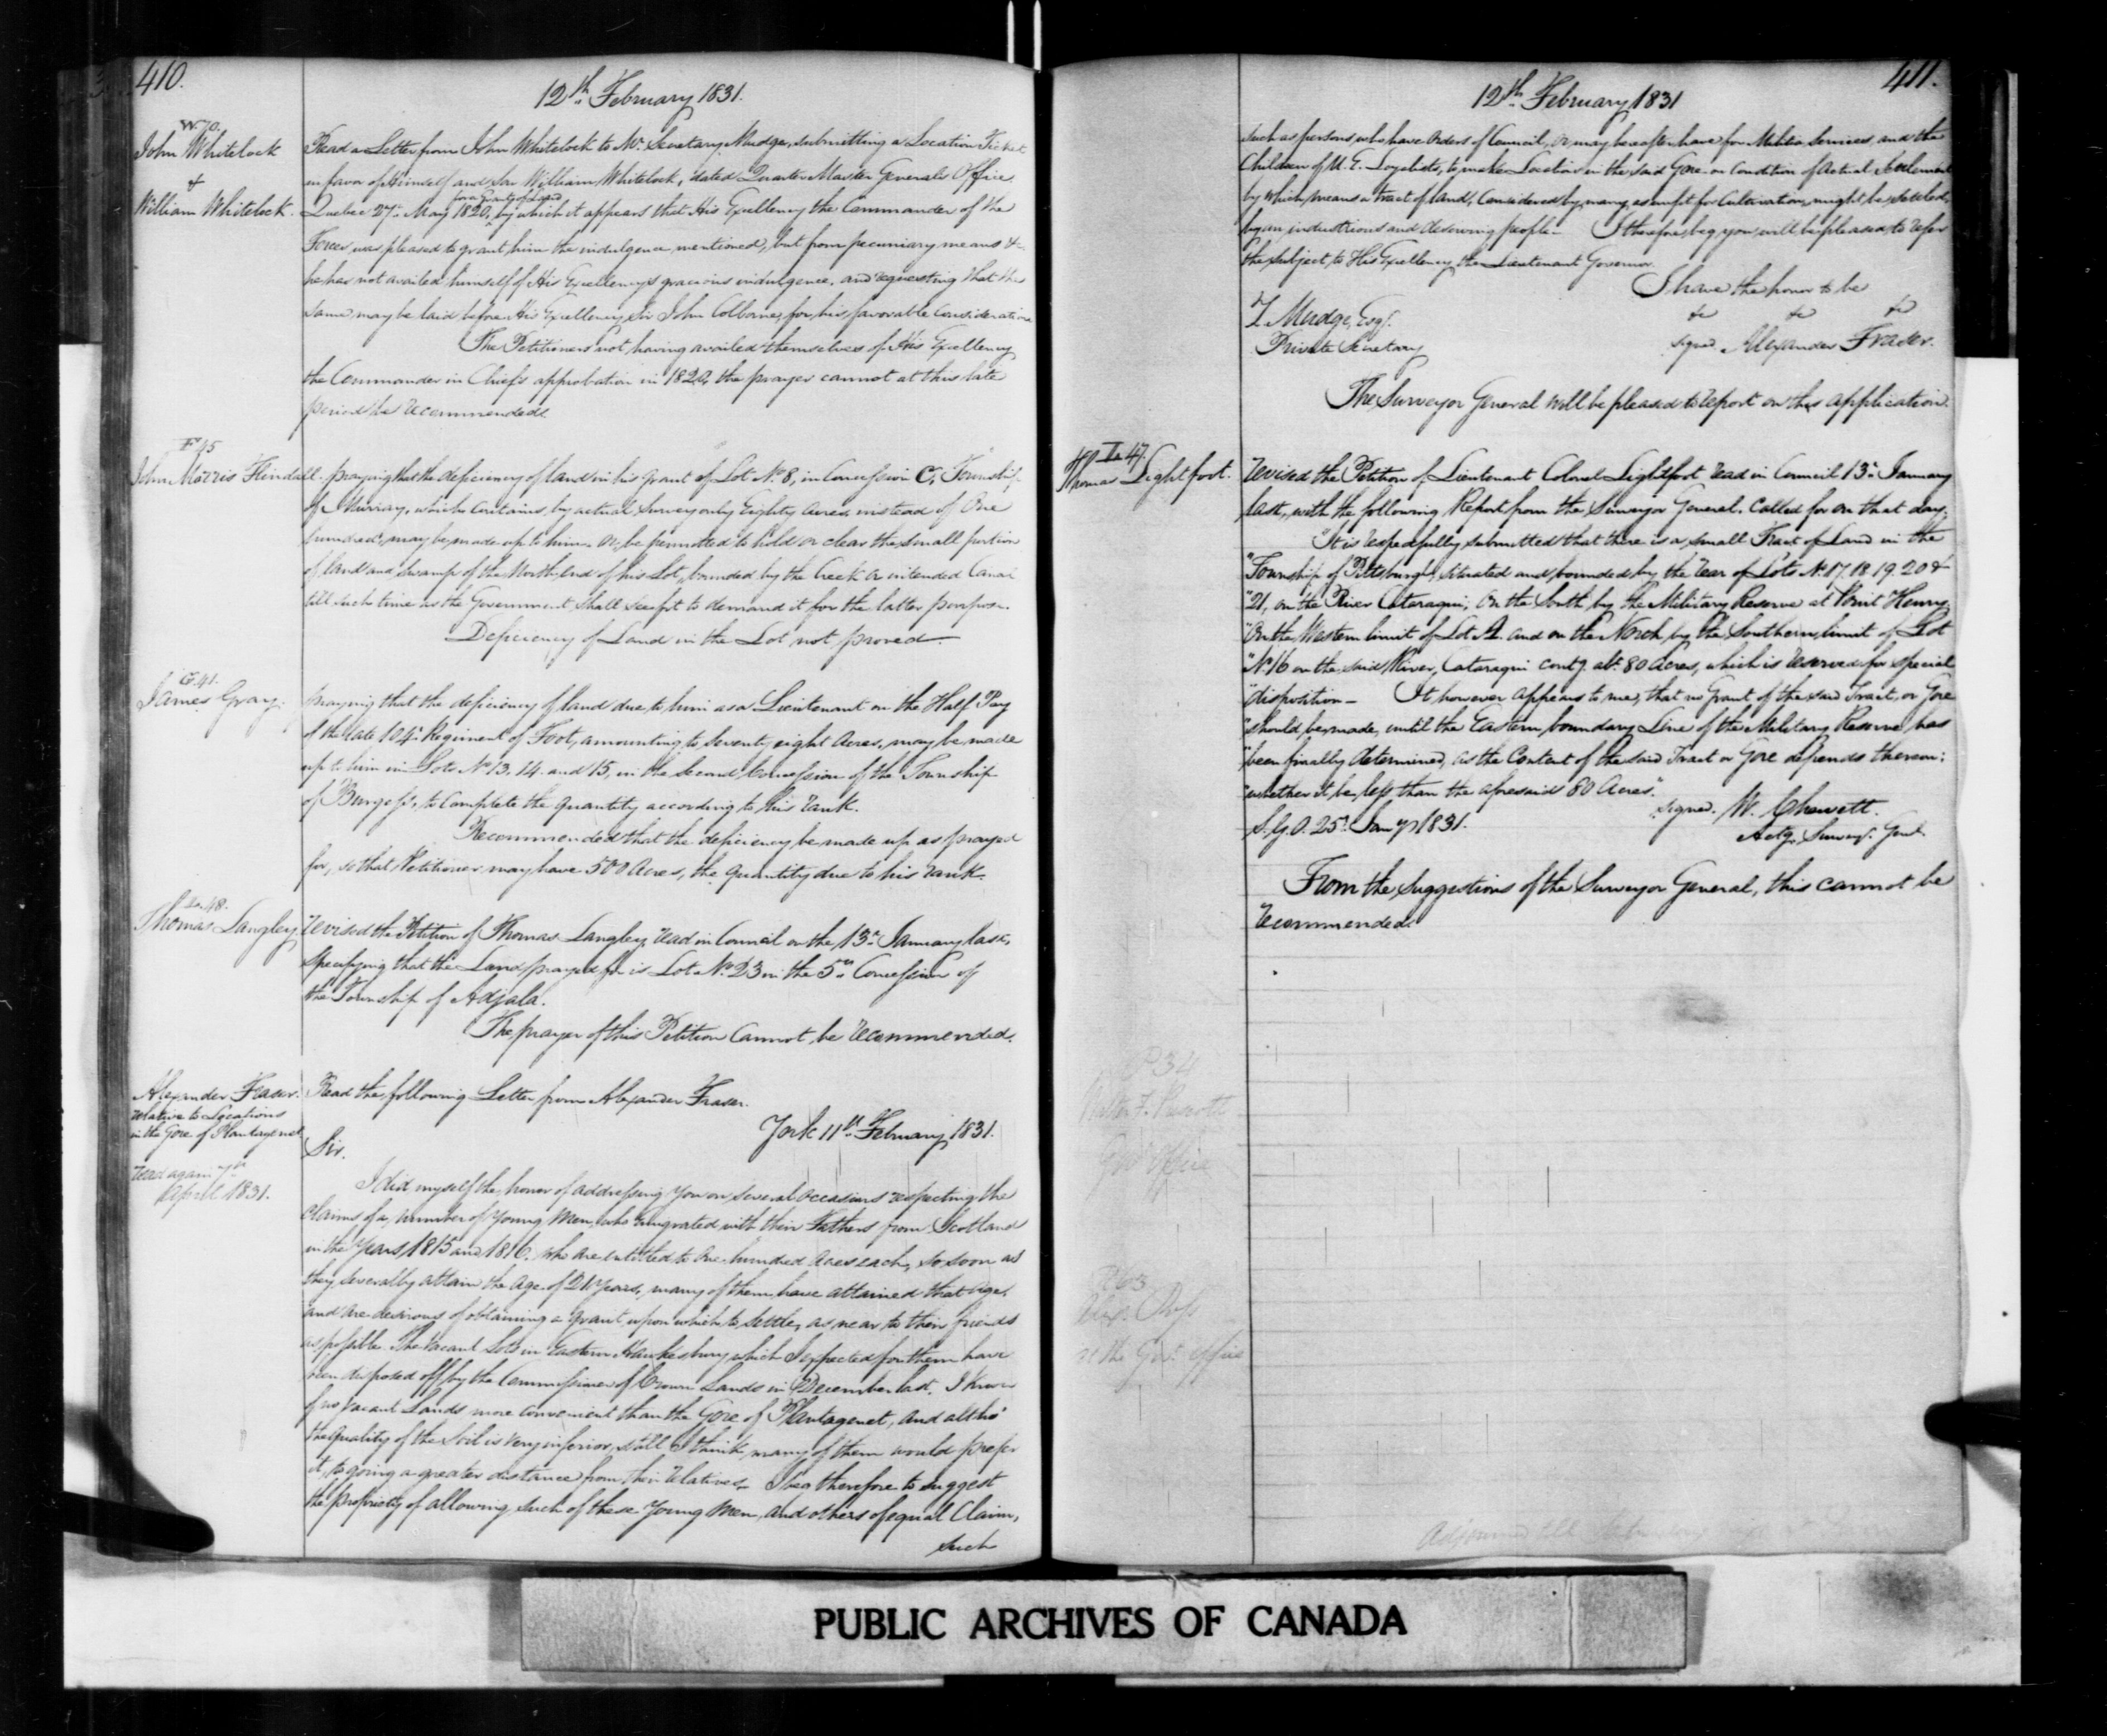 410.
12th February 1831.
W. 70.
John Whitelock
&
William Whitelock.
Read a Letter from John Whitelock to Mr. Secretary Mudge, submitting a Location Ticket
in favor of Himself and Son William Whitelock, dated Quarter Master Generals Office
for a Grant of Land
Quebec 27th May 1820, by which it appears that His Excellency the Commander of the
Forces was pleased to grant him the indulgence mentioned, but from pecuniary means &c
he has not availed himself of His Excellency's gracious indulgence, and requesting that the
same may be laid before His Excellency Sir John Colborne, for his favorable Consideration
The Petitioners not having availed themselves of His Excellency
the Commander in Chief's approbation in 1820, the prayer cannot at this late
period be recommended.
F 45
John Morris Flindall.
praying that the deficiency of land in his grant of Lot No. 8, in Concession C, Township
of Murray, which contains, by actual Survey only Eighty Acres instead of One
hundred, may be made up to him. Or, be permitted to hold or clear the small portion
of land and swamp of the North end of his Lot, bounded by the Creek or intended Canal
till such time as the Government shall see fit to demand it for the latter purpose.
Deficiency of Land in the Lot not proved
G. 41.
James Gray.
praying that the deficiency of land due to him as a Lieutenant on the Half Pay
of the late 104th Regiment of Foot, amounting to Seventy eight Acres, may be made
up to him in Lots No. 13. 14. and 15, in the Second Concession of the Township
of Burgess, to complete the quantity according to his rank.
Recommended that the deficiency be made up as prayed
for, so that Petitioner may have 500 Acres, the quantity due to his rank.
La. 48.
Thomas Langley
revised the Petition of Thomas Langley, read in Council on the 13th January last,
specifying that the Land prayed for is Lot No. 23 in the 5th Concession of
the Township of Adjala.
The prayer of this Petition Cannot be recommended.
Alexander Fraser.
relative to Locations
in the Gore of Plantagenet
read again 7th
April 1831.
Read the following Letter from Alexander Fraser.
York 11th February 1831.
Sir.
I did myself the honor of addressing you on several occasions respecting the
claims of a number of young Men, who emigrated with their Fathers from Scotland
in the Years 1815 and 1816. who are entitled to One hundred Acres each, so soon as
they severally attain the Age of 21 Years, many of them have attained that Age,
and are desirous of obtaining a grant upon which to settle, as near to their friends
as possible. The vacant Lots in Eastern Hawkesbury which I expected for them have
been disposed off by the Commissioner of Crown Lands in December last. I know
of no vacant Lands more convenient than the Gore of Plantagenet, and altho'
the quality of the Soil is very inferior, still I think many of them would prefer
it, to going a greater distance from their relatives. I beg therefore to suggest
the propriety of allowing such of these Young Men, and others of equal Claim,
such
411.
12th February 1831
such as persons who have Orders of Council, or may hereafter have for Militia Services, and the
Children of U. E. Loyalists, to make Location in the said Gore on Condition of Actual Settlement
by which means a tract of land, Considered by many as unfit for Cultivation, might be settled
by an industrious and deserving people. I therefore beg you will be pleased to refer
the subject to His Excellency the Lieutenant Governor.
I have the honor to be
&c &c &c
Z. Mudge, Esqr.
Private Secretary
signed Alexander Fraser.
The Surveyor General will be pleased to report on this application.
La 47.
Thomas Lightfoot.
revised the Petition of Lieutenant Colonel Lightfoot read in Council 13th January
last, with the following Report from the Surveyor General. Called for on that day.
"It is respectfully submitted that there is a small Tract of Land in the
"Township of Pittsburgh, situated and bounded by the rear of Lots No. 17. 18. 19. 20 &
"21, on the River Cataraqui, On the South by the Military Reserve at Point Henry.
"On the Western limit of Lot A. and on the North, by the Southern limit of Lot
"No. 16 on the said River, Cataraqui contg. abt. 80 Acres, which is reserved for special
"disposition— It however appears to me, that no Grant of the said Tract, or Gore
"should be made, until the Eastern boundary Line of the Military Reserve has
"been finally determined, as the Content of the said Tract or Gore depends thereon:
"whether it be less than the aforesaid 80 Acres."
signed. W. Chewett.
S. G. O. 25th Jany. 1831.
Actg. Surveyr. Genl.
From the suggestions of the Surveyor General, this cannot be
recommended.
P 34
PUBLIC ARCHIVES OF CANADA